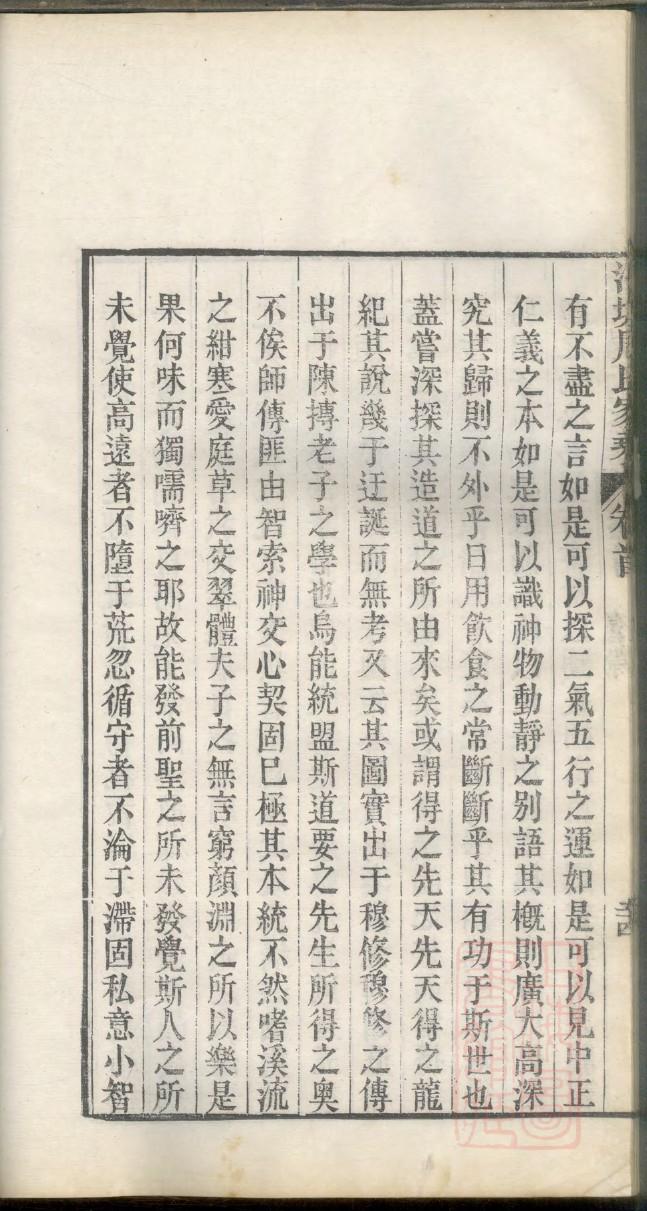 有不盡之言如是可以探二氣五行之運如是可以見中正
仁義之本如是可以識神物動靜之别語其槪則廣大高深
究其歸則不外乎日用飮食之常斷斷乎其有功于斯世也
蓋嘗深探其造道之所由來矣或謂得之先天先天得之龍
紀其說幾于迂誕而無考又云其圖實出于穆修穆修之傳
出于陳摶老子之學也烏能統盟斯道要之先生所得之奥
不俟師傳匪由智索神交心契固已極其本統不然嗜溪流
之紺寒愛庭草之交翠體夫子之無言窮顔淵之所以樂是
果何味而獨嚅嚌之耶故能發前聖之所未發覺斯人之所
未覺使高遠者不墮于荒忽循守者不淪于滯固私意小智